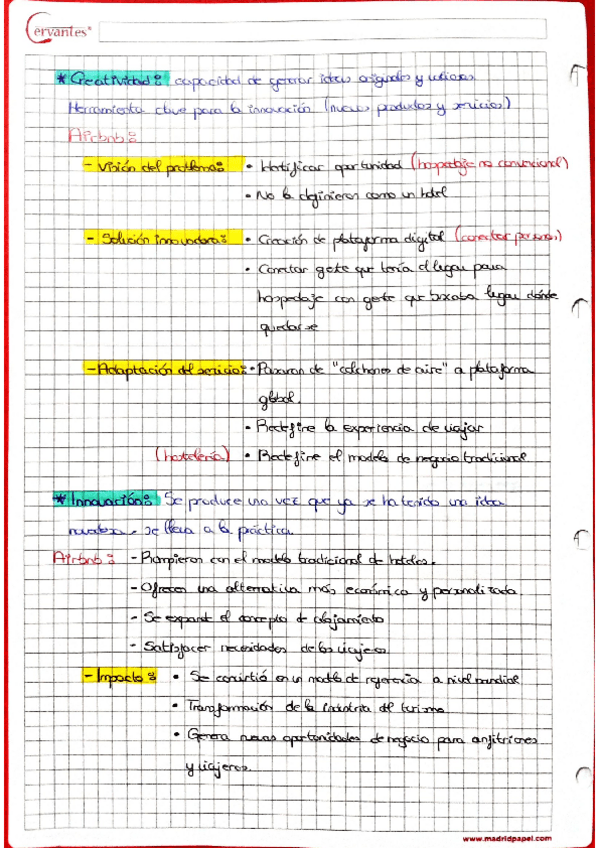 Cervantes®
* Creatividad: capacidad de generar ideas originales y valiosas
Herramienta clave para la innovación (nuevos productos y servicios)
Airbnb:
- Visión del problema: • Identificar oportunidad (hospedaje no convencional)
• No lo definieron como un hotel
- Solución innovadora: • Creación de plataforma digital (conectar personas)
• Conectar gente que tenía el lugar para
hospedaje con gente que buscaba lugar dónde
quedarse
- Adaptación del servicio: • Pasaron de "colchones de aire" a plataforma
global.
• Redefine la experiencia de viajar
(hostelería) • Redefine el modelo de negocio tradicional
* Innovación: Se produce una vez que ya se ha tenido una idea
novedosa, se lleva a la práctica.
Airbnb: - Rompieron con el modelo tradicional de hoteles.
- Ofrecen una alternativa más económica y personalizada
- Se expande el concepto de alojamiento
- Satisfacer necesidades de los viajeros
- Impacto: • Se convirtió en un modelo de referencia a nivel mundial
• Transformación de la industria del turismo
• Genera nuevas oportunidades de negocio para anfitriones
y viajeros.
www.madridpapel.com